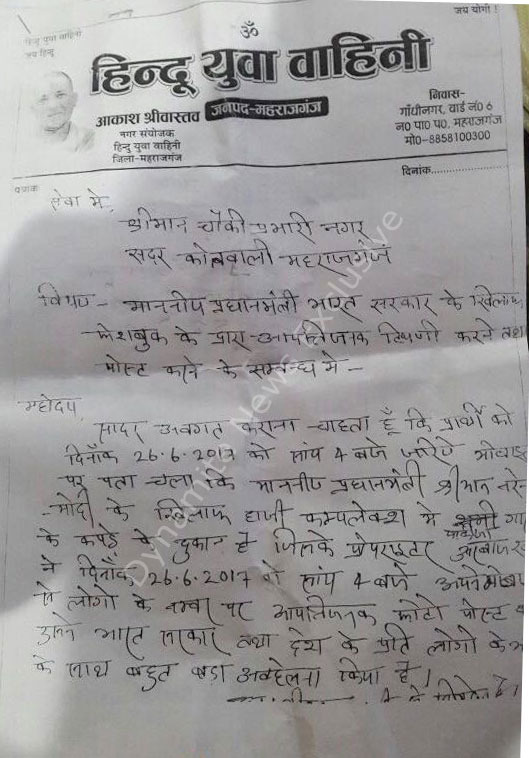 जय योगी !
हिन्दू युवा वाहिनी
जय हिन्दू
ॐ
हिन्दू युवा वाहिनी
आकाश श्रीवास्तव
जनपद-महराजगंज
नगर संयोजक
हिन्दू युवा वाहिनी
जिला-महराजगंज
निवास-
गाँधीनगर, वार्ड नं0 6
न0 पा0 प0, महराजगंज
मो0-8858100300
पत्रांक
दिनांक............
सेवा में,
श्रीमान चौकी प्रभारी नगर
सदर कोतवाली महराजगंज
विषय - माननीय प्रधानमंत्री भारत सरकार के खिलाफ
फेशबुक के द्वारा आपत्तिजनक टिप्पणी करने तथा
पोस्ट करने के सम्बन्ध मे -
महोदय,
सादर अवगत कराना चाहता हूँ कि प्रार्थी को
दिनाँक 26.6.2017 को सांय 4 बजे जरिये मोबाइल
पर पता चला कि माननीय प्रधानमंत्री श्रीमान नरेन
-मोदी के खिलाफ हाजी कम्पलेक्श मे
के कपड़े के दुकान है जिसके प्रोपराइटर
ने दिनाँक 26.6.2017 को सांय 4 बजे अपने मोबा
से लोगो के नम्बर पर आपत्तिजनक फोटो पोस्ट
उसने भारत सरकार तथा देश के प्रति लोगो के
के साथ बहुत बड़ा अवहेलना किया है।
Dynamite News Exclusive